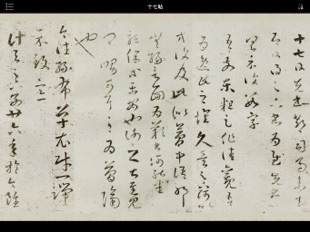 十七帖
十七日先書郗司馬未去
即日得足下書為慰先書
以具示復數字
吾前東粗足作佳觀
吾為逸民之懷久矣足下何以
方復及此似夢中語耶
無緣言面為歎書何能悉
龍保等平安也謝之甚遲見
卿舅可耳至為簡隔
也
今往絲布單衣財一端
示致意
計與足下別廿六年於今雖